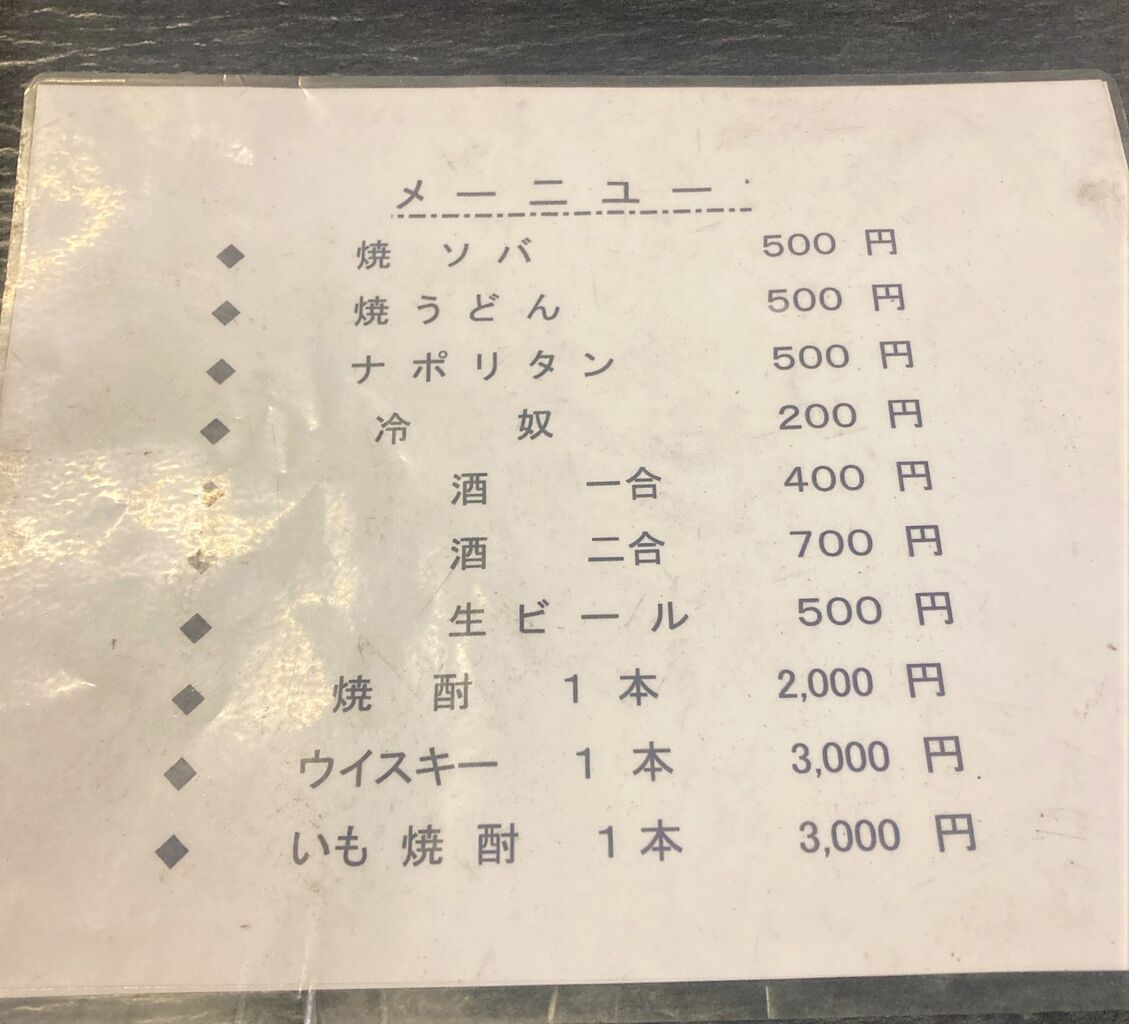 メーニュー
◆ 焼 ソバ 500 円
◆ 焼うどん 500 円
◆ ナポリタン 500 円
◆ 冷 奴 200 円
◆ 酒 一合 400 円
◆ 酒 二合 700 円
◆ 生ビール 500 円
◆ 焼 酎 1 本 2,000 円
◆ ウイスキー 1 本 3,000 円
◆ いも焼酎 1本 3,000 円